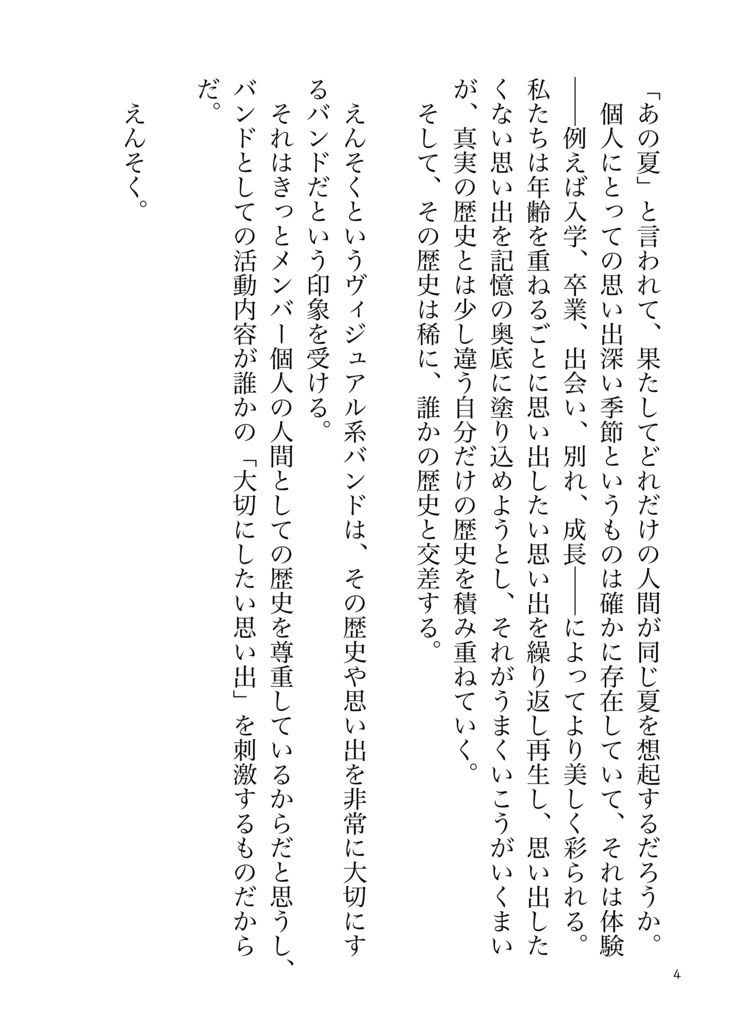 「あの夏」と言われて、果たしてどれだけの人間が同じ夏を想起するだろうか。
個人にとっての思い出深い季節というものは確かに存在していて、それは体験
――例えば入学、卒業、出会い、別れ、成長――によってより美しく彩られる。
私たちは年齢を重ねるごとに思い出したい思い出を繰り返し再生し、思い出した
くない思い出を記憶の奥底に塗り込めようとし、それがうまくいこうがいくまい
が、真実の歴史とは少し違う自分だけの歴史を積み重ねていく。
そして、その歴史は稀に、誰かの歴史と交差する。
えんそくというヴィジュアル系バンドは、その歴史や思い出を非常に大切にす
るバンドだという印象を受ける。
それはきっとメンバー個人の人間としての歴史を尊重しているからだと思うし、
バンドとしての活動内容が誰かの「大切にしたい思い出」を刺激するものだから
だ。
えんそく。
4